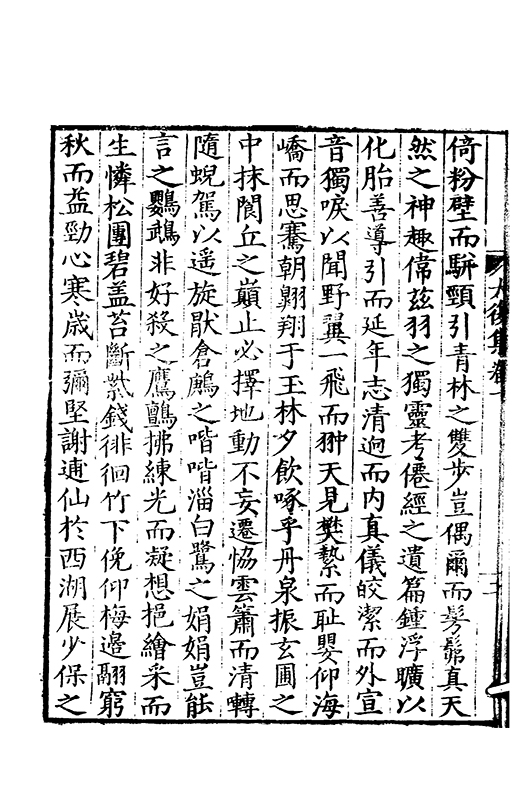 倚粉壁而駢頸引青林之雙步豈偶爾而髣髴真天
然之神趣儋茲羽之獨靈考僊經之遺篇鍾浮曠以
化胎善導引而延年志清逈而内真儀皎潔而外宣
音獨唳以聞野翼一飛而翀天見樊縶而耻嬰仰海
嶠而思騫朝翺翔于玉林夕飲啄乎丹泉振玄圃之
中抹閬丘之巔止必擇地動不妄遷恊雲簫而清轉
隨蜺駕以遥旋猒倉鷓之喈喈淄白鷺之娟娟豈能
言之鸚鵡非好殺之鷹鸇拂練光而凝想挹繪采而
生憐松團碧蓋苔斷紫錢徘徊竹下俛仰梅邊翮窮
秋而益勁心寒歳而彌堅謝逋仙於西湖展少保之